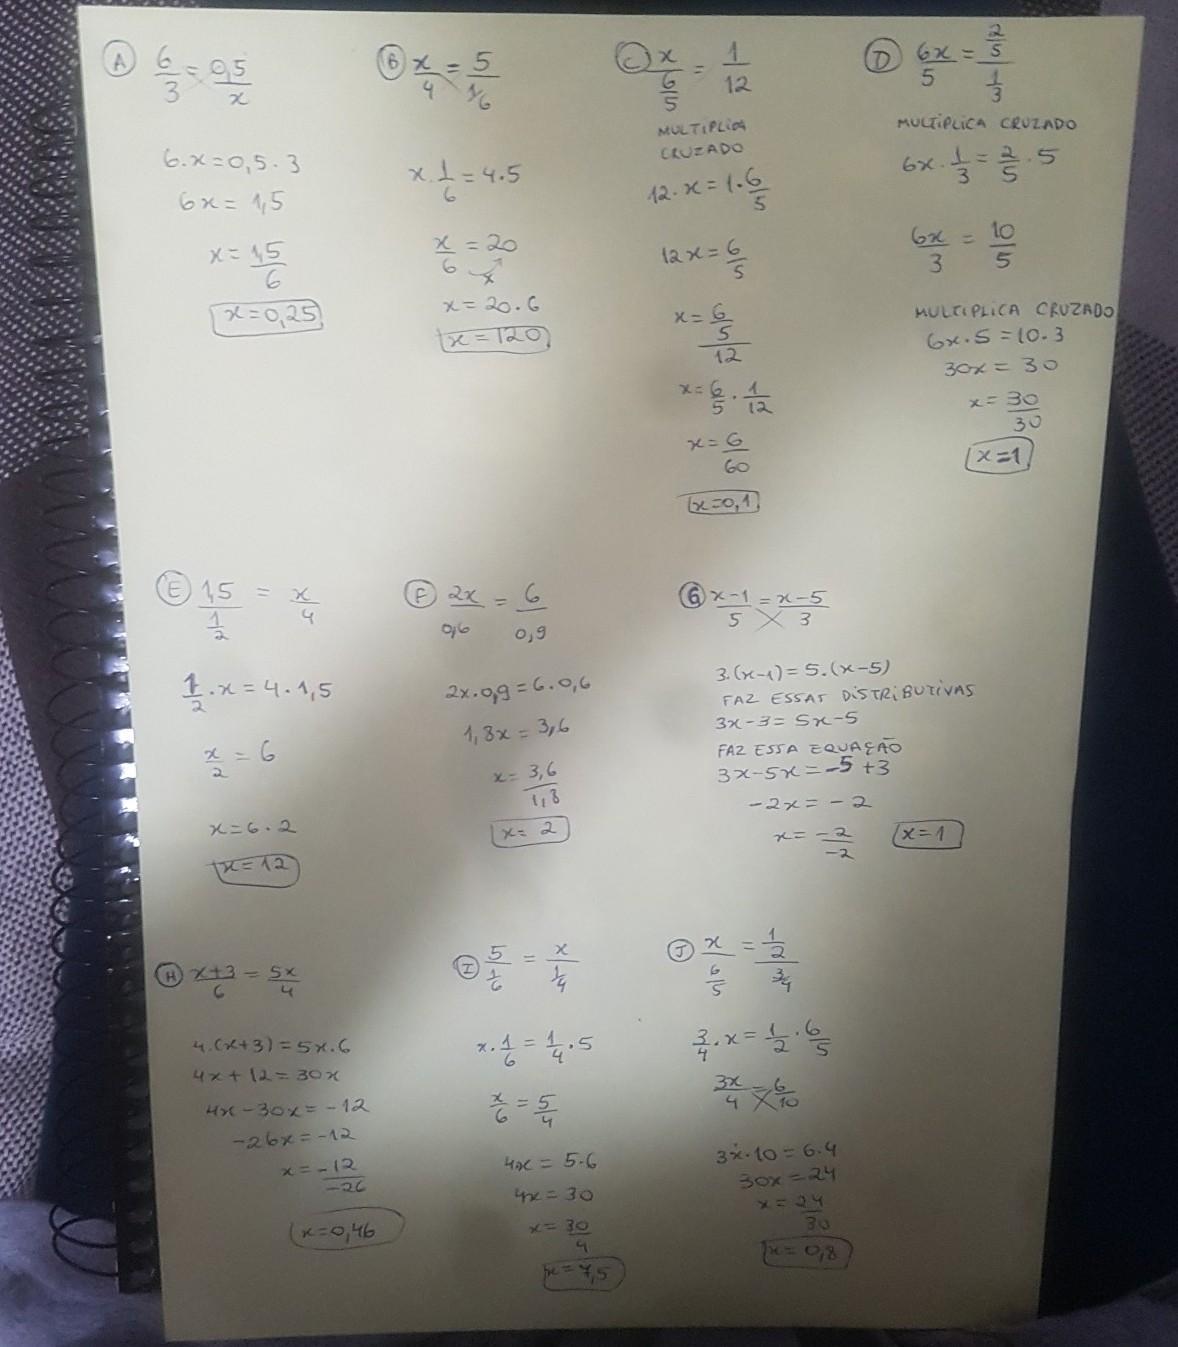 A 6/3 = 0,5/x
6.x = 0,5.3
6x = 1,5
x = 1,5/6
x = 0,25
B x/4 = 5/(1/6)
x.1/6 = 4.5
x/6 = 20
x
x = 20.6
x = 120
C x/(6/5) = 1/12
MULTIPLICA
CRUZADO
12.x = 1.6/5
12x = 6/5
x = (6/5)/12
x = 6/5 . 1/12
x = 6/60
x = 0,1
D 6x/5 = (2/5)/(1/3)
MULTIPLICA CRUZADO
6x.1/3 = 2/5 . 5
6x/3 = 10/5
MULTIPLICA CRUZADO
6x.5 = 10.3
30x = 30
x = 30/30
x = 1
E 1,5/(1/2) = x/4
1/2 . x = 4.1,5
x/2 = 6
x = 6.2
x = 12
F 2x/0,6 = 6/0,9
2x.0,9 = 6.0,6
1,8x = 3,6
x = 3,6/1,8
x = 2
G x-1/5 = x-5/3
3.(x-1) = 5.(x-5)
FAZ ESSAS DISTRIBUTIVAS
3x-3 = 5x-5
FAZ ESSA EQUAÇÃO
3x-5x = -5+3
-2x = -2
x = -2/-2
x = 1
H x+3/6 = 5x/4
4.(x+3) = 5x.6
4x+12 = 30x
4x-30x = -12
-26x = -12
x = -12/-26
x = 0,46
I 5/(1/6) = x/(1/4)
x.1/6 = 1/4 . 5
x/6 = 5/4
4x = 5.6
4x = 30
x = 30/4
x = 7,5
J x/(6/5) = (1/2)/(3/4)
3/4 . x = 1/2 . 6/5
3x/4 = 6/10
3x.10 = 6.4
30x = 24
x = 24/30
x = 0,8